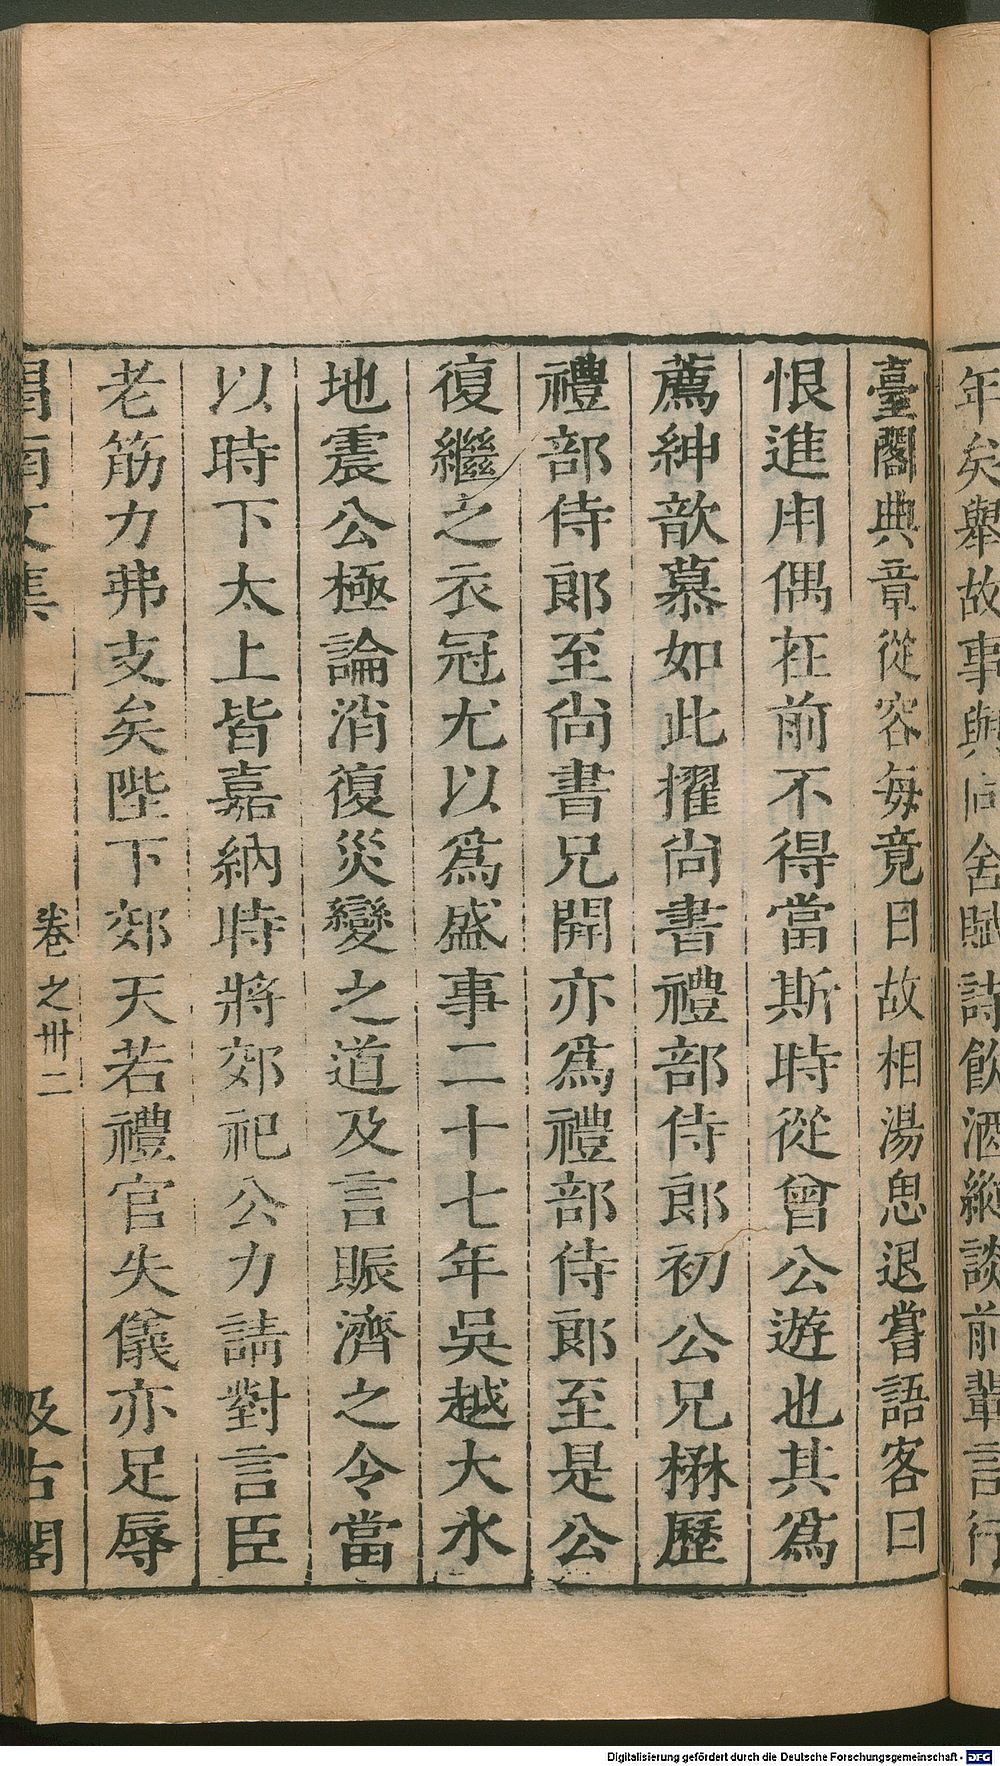 年矣舉故事與同舍賦詩飲酒縱談前輩言行
臺閣典章從容每竟日故相湯思退嘗語客曰
恨進用偶在前不得當斯時從曾公遊也其爲
薦紳歆慕如此擢尚書禮部侍郎初公兄楙歷
禮部侍郎至尚書兄開亦爲禮部侍郎至是公
復繼之衣冠尤以爲盛事二十七年吳越大水
地震公極論消復災變之道及言賑濟之令當
以時下太上皆嘉納時將郊祀公力請對言臣
老筋力弗支矣陛下郊天若禮官失儀亦足辱
南文集
卷之卅二
汲古閣
Digitalisierung gefördert durch die Deutsche Forschungsgemeinschaft - DFG